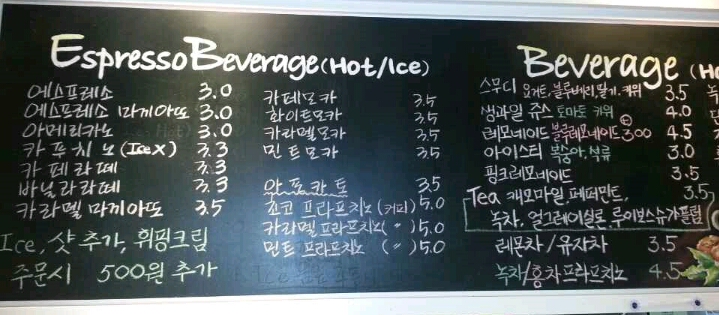 Espresso Beverage (Hot/Ice)
에스프레소 3.0
에스프레소 마끼아또 3.0
아메리카노 3.0
카푸치노 (Ice X) 3.3
카페라떼 3.3
바닐라라떼 3.3
카라멜 마끼아또 3.5
Ice, 샷 추가, 휘핑크림
주문시 500원 추가
카페모카 3.5
화이트모카 3.5
카라멜모카 3.5
민트모카 3.5
아포카토 3.5
쵸코 프라프치노 (커피) 5.0
카라멜 프라프치노 ( 〃 ) 5.0
민트 프라프치노 ( 〃 ) 5.0
Beverage (Ho
스무디 요거트, 블루베리, 딸기, 키위 3.5
생과일 쥬스 토마토 키위 4.0
레모네이드 블루레모네이드 4.5
아이스티 복숭아, 석류 3.0
핑크레모네이드 3.5
Tea 캐모마일, 페퍼민트, 3.5
녹차, 얼그레이, 루이보스
레몬차 / 유자차 3.5
녹차/홍차프라프치노 4.5